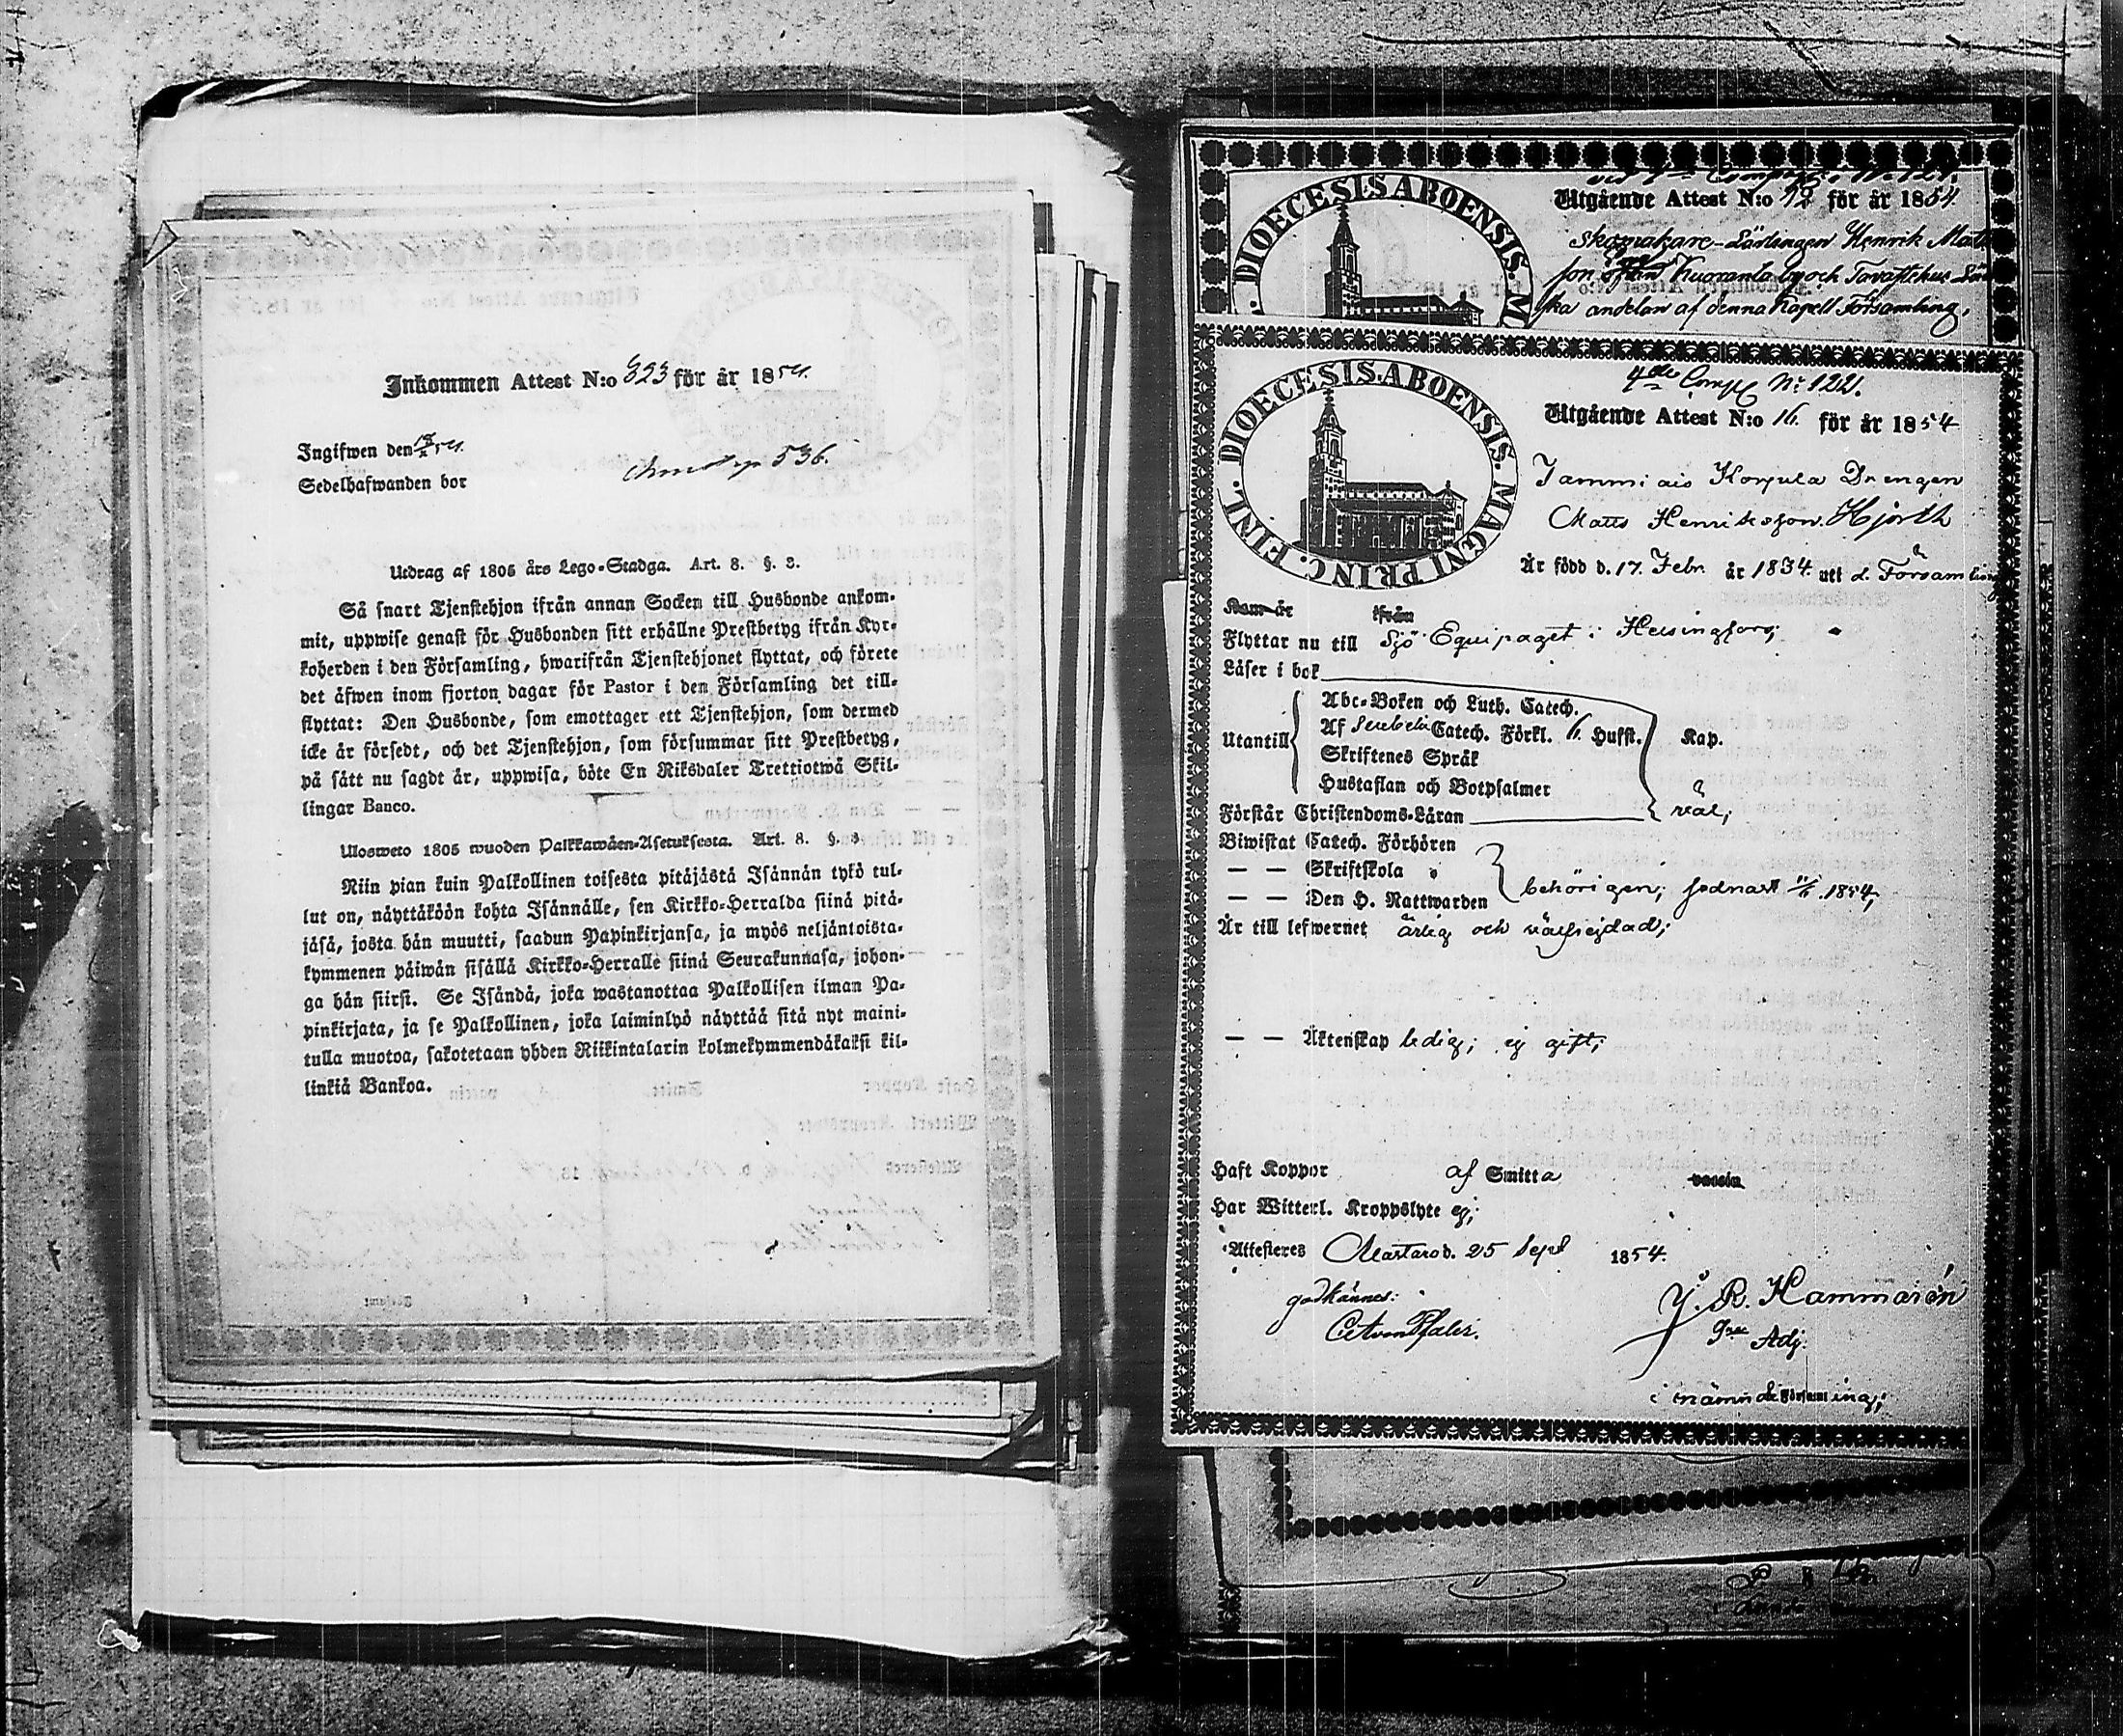 Inkommen Attest N:o 323 för år 1854.
Ingifwen den 18/x 54.
Sedelhafwanden bor
536.
Utdrag af 1805 års Lego-Stadga. Art. 8. §. 3.
Så snart Tjenstehjon ifrån annan Socken till Husbonde ankom-
mit, uppwise genast för Husbonden sitt erhållne Prestbetyg ifrån Kyr-
koherden i den Församling, hwarifrån Tjenstehjonet flyttat, och förete
det äfwen inom fjorton dagar för Pastor i den Församling det till-
flyttat: Den Husbonde, som emottager ett Tjenstehjon, som dermed
icke är försedt, och det Tjenstehjon, som försummar sitt Prestbetyg,
på sätt nu sagdt är, uppwisa, böte En Riksdaler Trettiotwå Skil-
lingar Banco.
Ulosweto 1805 wuoden Palkkawäen-Asetuksesta. Art. 8. §. 3
Niin pian kuin Palkollinen toisesta pitäjästä Isännän tykö tul-
lut on, näyttäköön kohta Isännälle, sen Kirkko-Herralda siinä pitä-
jäsä, josta hän muutti, saadun Papinkirjansa, ja myös neljäntoista-
kymmenen päiwän sisällä Kirkko-Herralle siinä Seurakunnasa, johon-
ga hän siirst. Se Isändä, joka wastanottaa Palkollisen ilman Pa-
pinkirjata, ja se Palkollinen, joka laiminlyö näyttää sitä nyt maini-
tulla muotoa, sakotetaan yhden Riikintalarin kolmekymmendäkaksi kil-
linkiä Bankoa.
DIOECESIS ABOENSIS. M
Utgående Attest N:o 98 för år 1854.
Skomakare-Lärlingen Henrik Mats
son från Kuoranta by och Tavastehus Län
ska andelan af denna Kapell Församling,
DIOECESIS ABOENSIS. MAGNI PRINC. FINL.
4de Comp N:o 122.
Utgående Attest N:o 16. för år 1854
Tammiais Korpula Drengen
Matts Henriksson Hjorth
Är född d. 17. Febr. år 1834. uti d. Församling
Kom är ifrån
Flyttar nu till Sjö Equipaget i Helsingfors;
Läser i bok
Utantill
Abc-Boken och Luth. Catech.
Af Svebelii Catech. Förkl. 6. Hufst. Kap.
Skriftenes Språk
Hustaflan och Botpsalmer
Förstår Christendoms-Läran väl;
Biwistat Catech. Förhören
— — Skriftskola
— — Den H. Nattwarden behörigen; sednast 11/6 1854;
Är till lefwernet ärlig och välfrejdad;
— — Äktenskap ledig; ej gift;
Haft Koppor af Smitta vaccin
Har Witterl. Kroppslyte ej;
Attesteres Martaro d. 25 Sept 1854.
godkännes:
J. R. Hammarén
Adj.
i nämnde Församling;